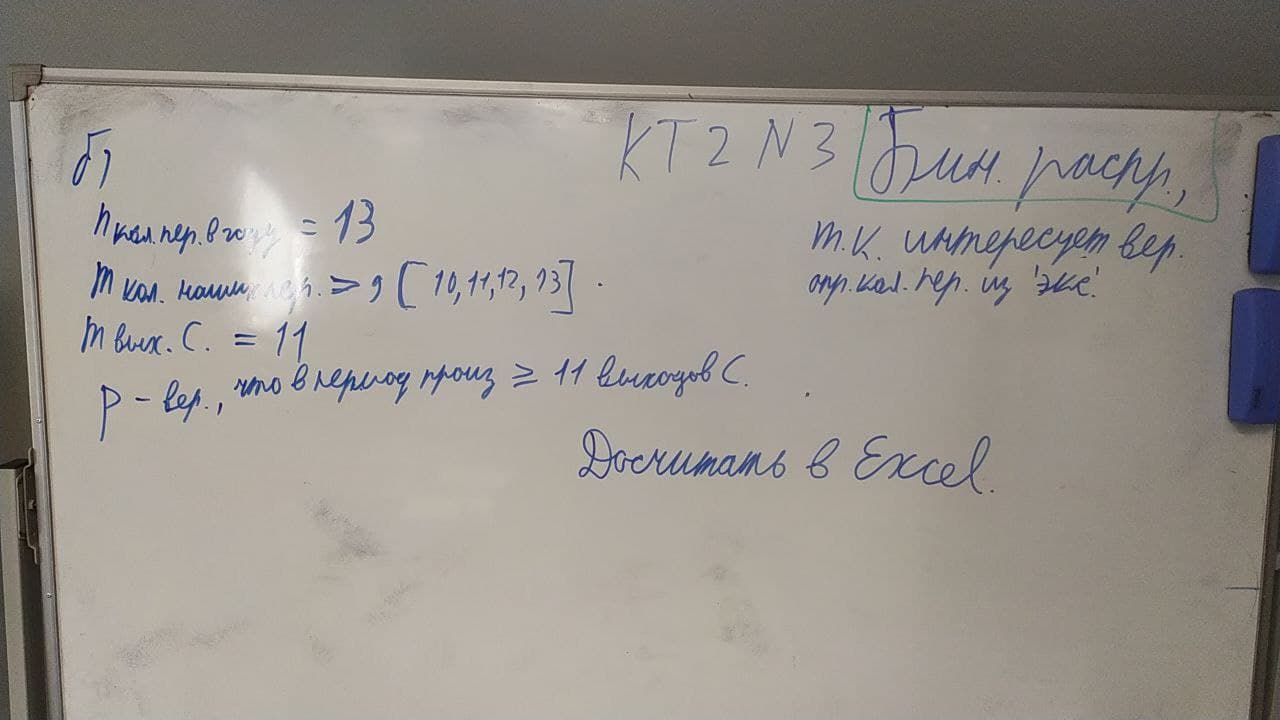 КТ2 N3 Бин. распр.,
т.к. интересует вер.
опр. кол. пер. из 'экс'.
б)
n кол. пер. в году = 13
m кол. наших пер. > 9 [10, 11, 12, 13]
m вых. С. = 11
p - вер., что в период произ ≥ 11 выходов С.
Досчитать в Excel.